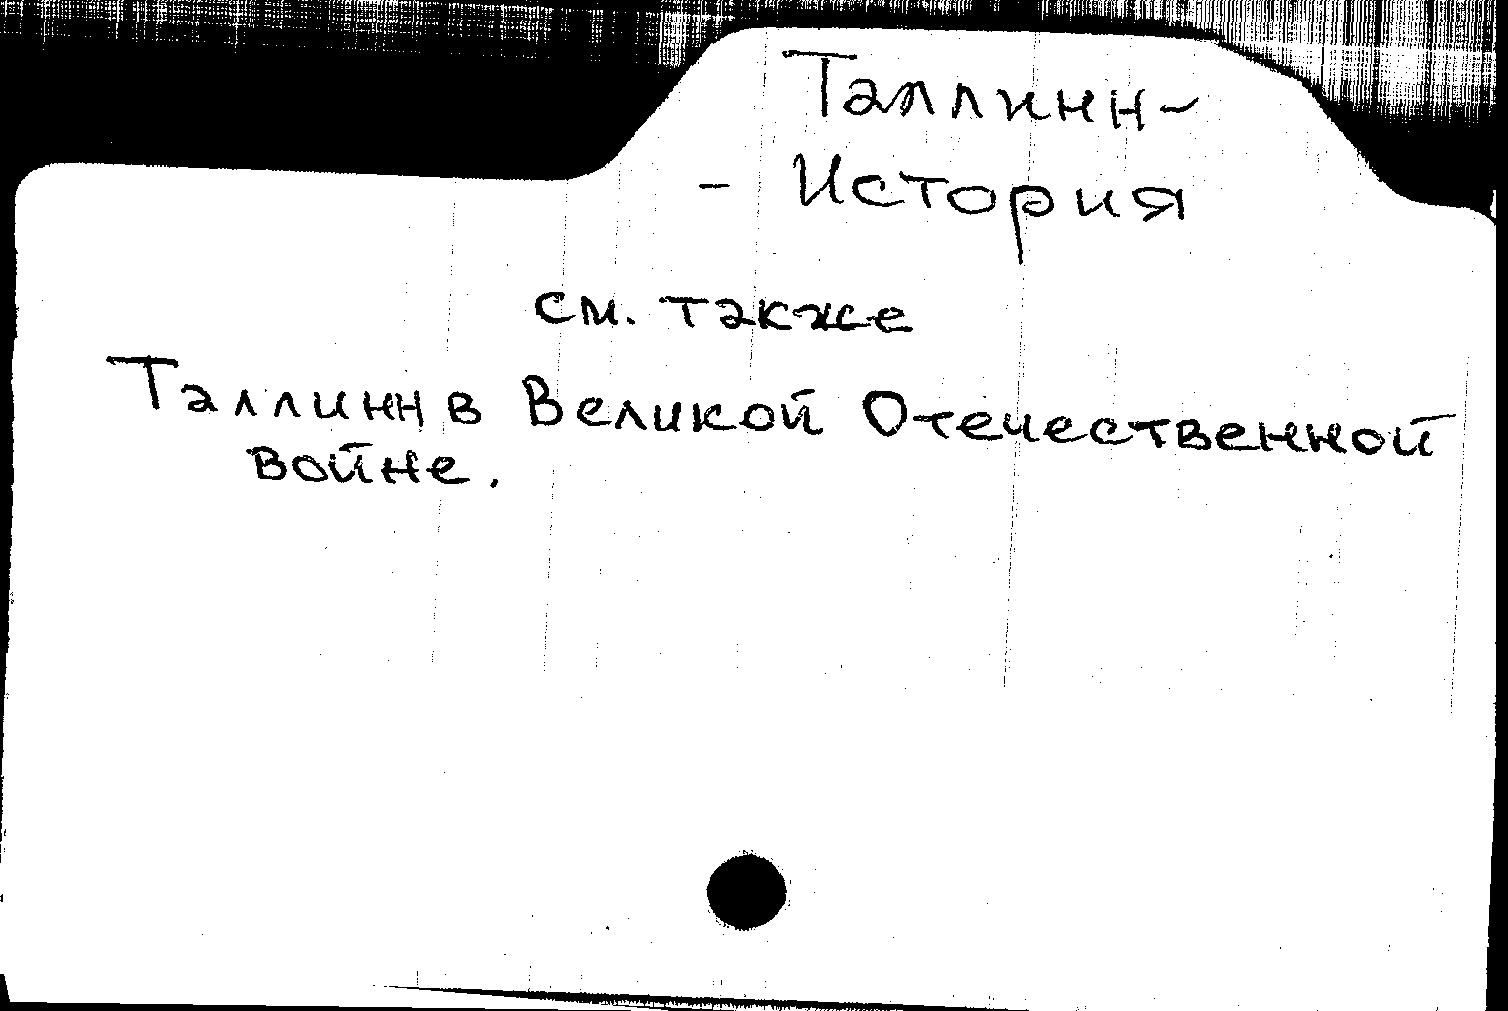 Таллинн-
- История
см. также
Таллинн в Великой Отечественной
войне.